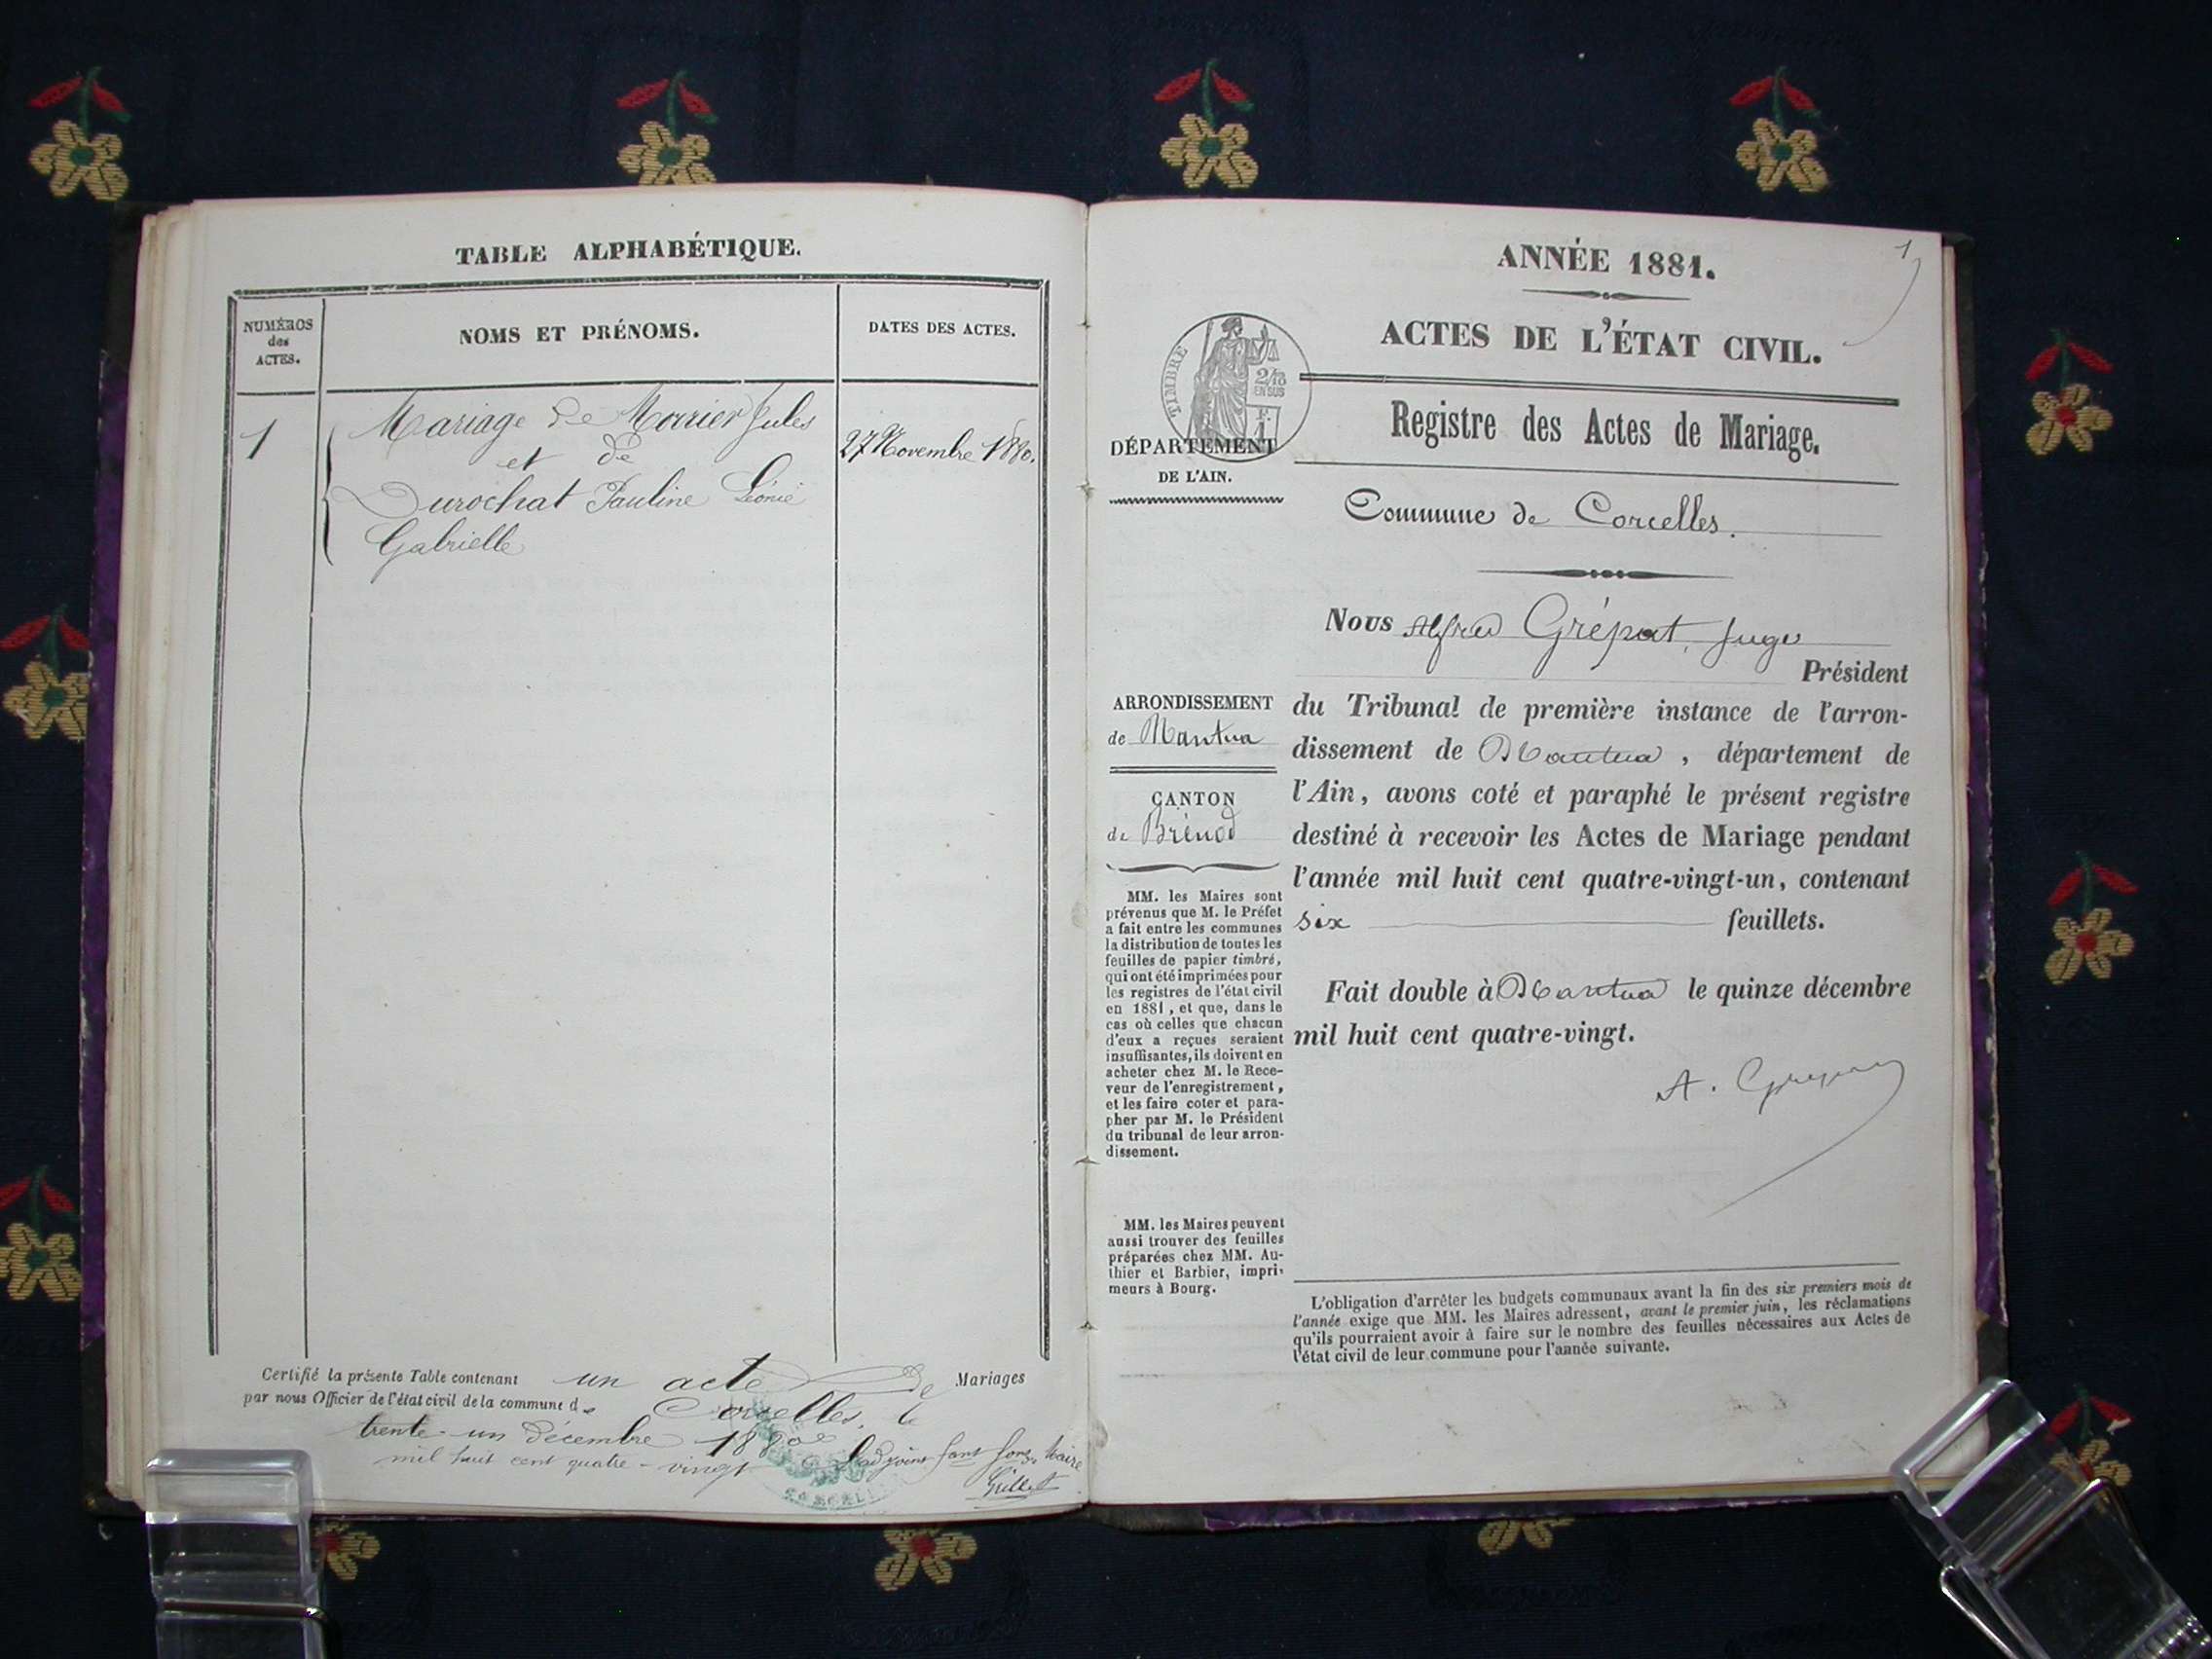 TABLE ALPHABÉTIQUE.
NUMÉROS
des
ACTES.
NOMS ET PRÉNOMS.
DATES DES ACTES.
1
Mariage de Morrier Jules
et de
Durochat Pauline Léonie
Gabrielle
27 Novembre 1880.
Certifié la présente Table contenant un acte de Mariages
par nous Officier de l'état civil de la commune de Corcelles, le
trente-un décembre 1880
mil huit cent quatre-vingt
L'adjoint fant fons. Maire
ANNÉE 1881.
1
ACTES DE L'ÉTAT CIVIL.
TIMBRE
2/10
EN SUS
DÉPARTEMENT
DE L'AIN.
Registre des Actes de Mariage.
Commune de Corcelles.
Nous Alfred Grépat, Juge
Président
du Tribunal de première instance de l'arron-
dissement de Mantua, département de
l'Ain, avons coté et paraphé le présent registre
destiné à recevoir les Actes de Mariage pendant
l'année mil huit cent quatre-vingt-un, contenant
six feuillets.
Fait double à Mantua le quinze décembre
mil huit cent quatre-vingt.
ARRONDISSEMENT
de Mantua
CANTON
de Brénod
MM. les Maires sont
prévenus que M. le Préfet
a fait entre les communes
la distribution de toutes les
feuilles de papier timbré,
qui ont été imprimées pour
les registres de l'état civil
en 1881, et que, dans le
cas où celles que chacun
d'eux a reçues seraient
insuffisantes, ils doivent en
acheter chez M. le Rece-
veur de l'enregistrement,
et les faire coter et para-
pher par M. le Président
du tribunal de leur arron-
dissement.
MM. les Maires peuvent
aussi trouver des feuilles
préparées chez MM. Au-
thier et Barbier, impri-
meurs à Bourg.
L'obligation d'arrêter les budgets communaux avant la fin des six premiers mois de
l'année exige que MM. les Maires adressent, avant le premier juin, les réclamations
qu'ils pourraient avoir à faire sur le nombre des feuilles nécessaires aux Actes de
l'état civil de leur commune pour l'année suivante.